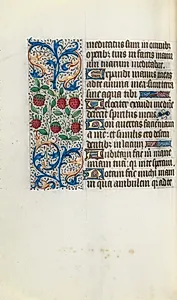 meditatus sum in omnib
operibus tuis in factis manu
um tuarum meditabar
Expandi manus meas
ad te anima mea sicut terra
sine aqua tibi
Velociter exaudi me domine
defecit spiritus meus
Non avertas faciem tuam
a me et similis ero descen
dentibus in lacum
Auditam fac michi mane
misericordiam tuam quia in te speravi
Notam fac michi viam
in qua ambulem quia ad te